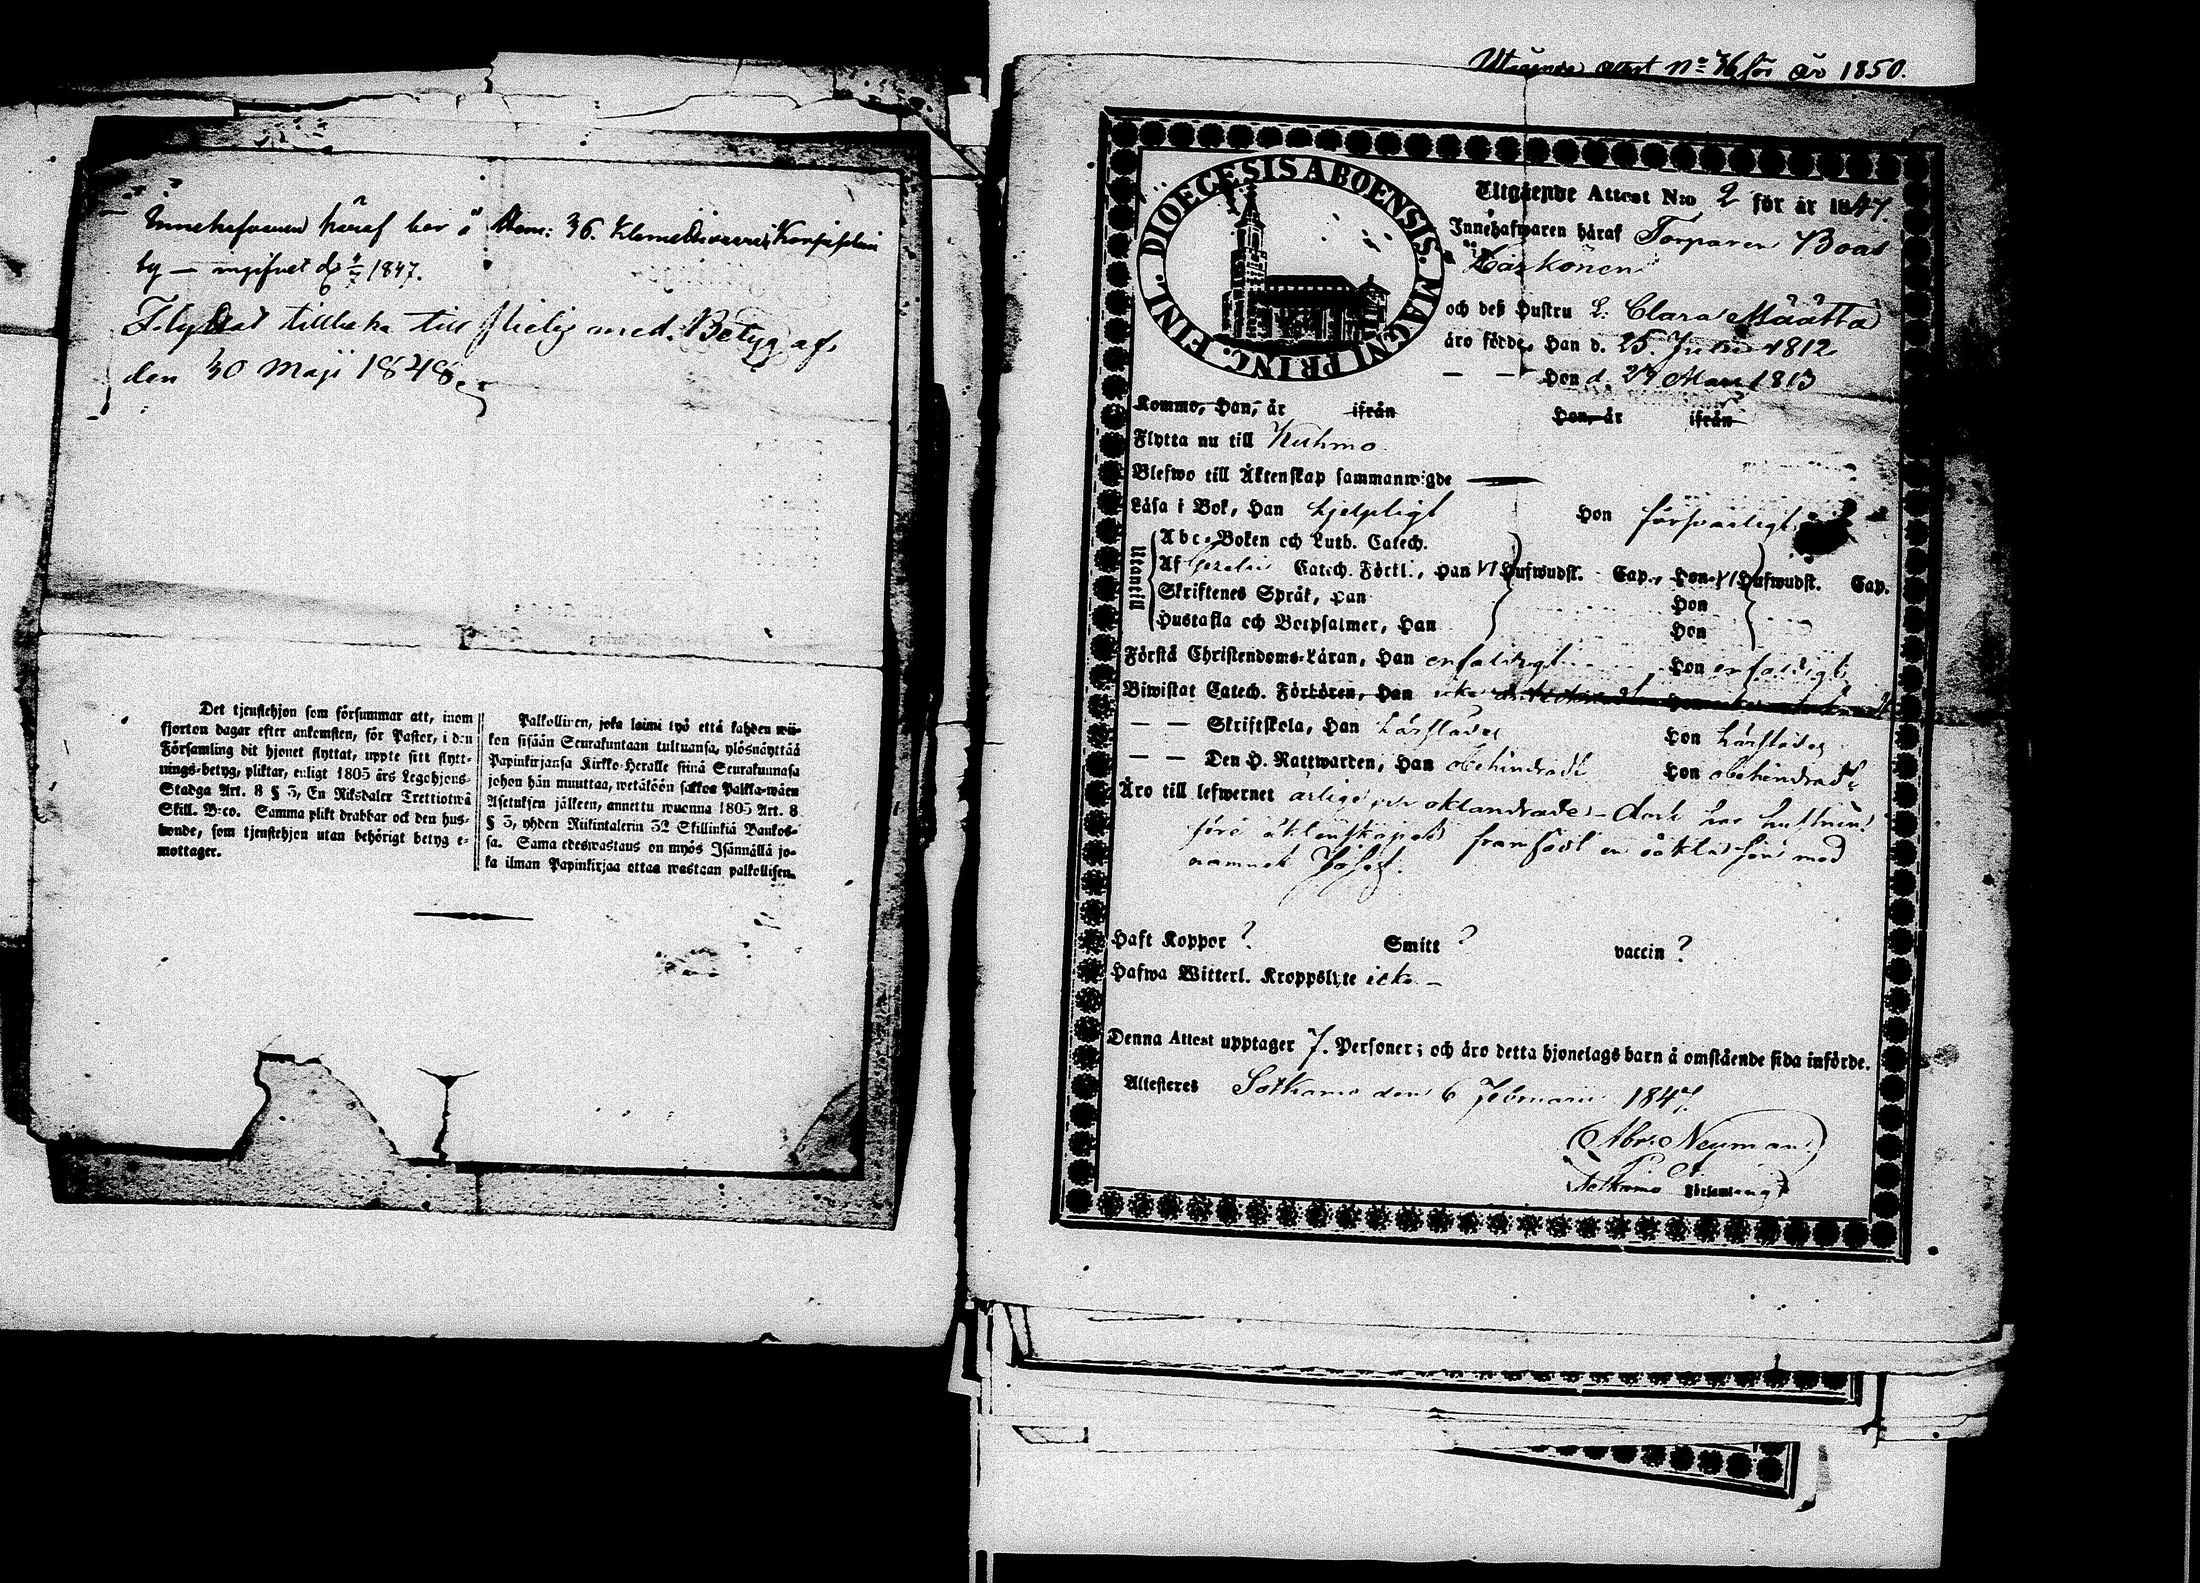 Innehafvaren häraf bor å Hem: 36.
by — ingifvet d. 1847.
Flyttat tillbaka till med Betyg af
den 30 Maji 1848.
Det tjenstehjon som försummar att, inom
fjorton dagar efter ankomsten, för Pastor, i den
Församling dit hjonet flyttat, uppte sitt flytt-
nings-betyg, pliktar, enligt 1805 års Legohjons-
Stadga Art. 8 § 3, En Riksdaler Trettiotwå
Skill. B:co. Samma plikt drabbar ock den hus-
bonde, som tjenstehjon utan behörigt betyg e-
mottager.
Palkollinen, joka laimi lyö että kahden wii-
kon sisään Seurakuntaan tultuansa, ylösnäyttää
Papinkirjansa Kirkko-Heralle siinä Seurakunnasa
johon hän muuttaa, wetäköön sakkoa Palkka-wäen
Asetuksen jälkeen, annettu wuonna 1805 Art. 8
§ 3, yhden Riikintalerin 32 Skillinkiä Banko-
sa. Sama edeswastaus on myös Isännällä jo-
ka ilman Papinkirjaa ottaa wastaan palkollisen.
attest No för år 1850.
DIOECESIS ABOENSIS. MAGNI PRINC. FINL.
Utgående Attest N:o 2 för år 1847.
Innehafwaren häraf Torparen Boas
Härkönen
och deß Hustru L: Clara Määttä
äro födde, Han d. 25. 1812
— — Hon d. 1813
Kommo, Han, år ifrån Hon, år ifrån
Flytta nu till Kuhmo.
Blefwo till Äktenskap sammanwigde —
Läsa i Bok, Han hjelpligt Hon försvarligt
Utantill
Abc-Boken och Luth. Catech.
Af Catech. Förkl., Han VI Hufwudst. Cap., Hon VI Hufwudst. Cap.
Skriftenes Språk, Han Hon
Hustafla och Botpsalmer, Han Hon
Förstå Christendoms-Läran, Han enfaldigt Hon enfaldigt
Biwistat Catech. Förhören, Han icke Hon
— — Skriftskola, Han Hon
— — Den H. Nattwarden, Han obehindrade Hon obehindrad
Äro till lefwernet ärlige och oklandrade – dock har hustrun
före äktenskapet framfödt en oäkta son med
namnet
Haft Koppor ? Smitt ? vaccin ?
Hafwa Witterl. Kroppslyte icke —
Denna Attest upptager 7. Personer; och äro detta hjonelags barn å omstående sida införde.
Attesteres Sotkamo den 6 Februarii 1847.
Abr. Neuman
Sotkamo Församling